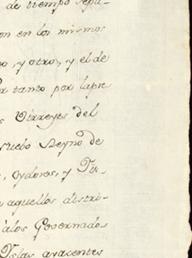 de tiempo sepa-
on en los mismos
o, y otro, y el de
tanto por la pre
s Virreyes del
Nuebo Reyno de
, Oydores, y Fis-
aquellos distri-
à los Governado
Yslas ayacentes